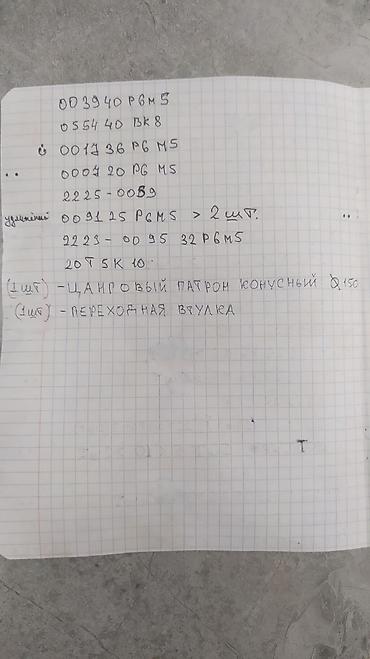 003940 Р6М5
055440 ВК8
001736 Р6 М5
000720 Р6 М5
2225-0059
удлинённый 009125 Р6М5 > 2 шт.
2223-0095 32 Р6М5
20 Т5К10
(1шт) - ЦАНГОВЫЙ ПАТРОН КОНУСНЫЙ 150
(1шт) - ПЕРЕХОДНАЯ ВТУЛКА
Т